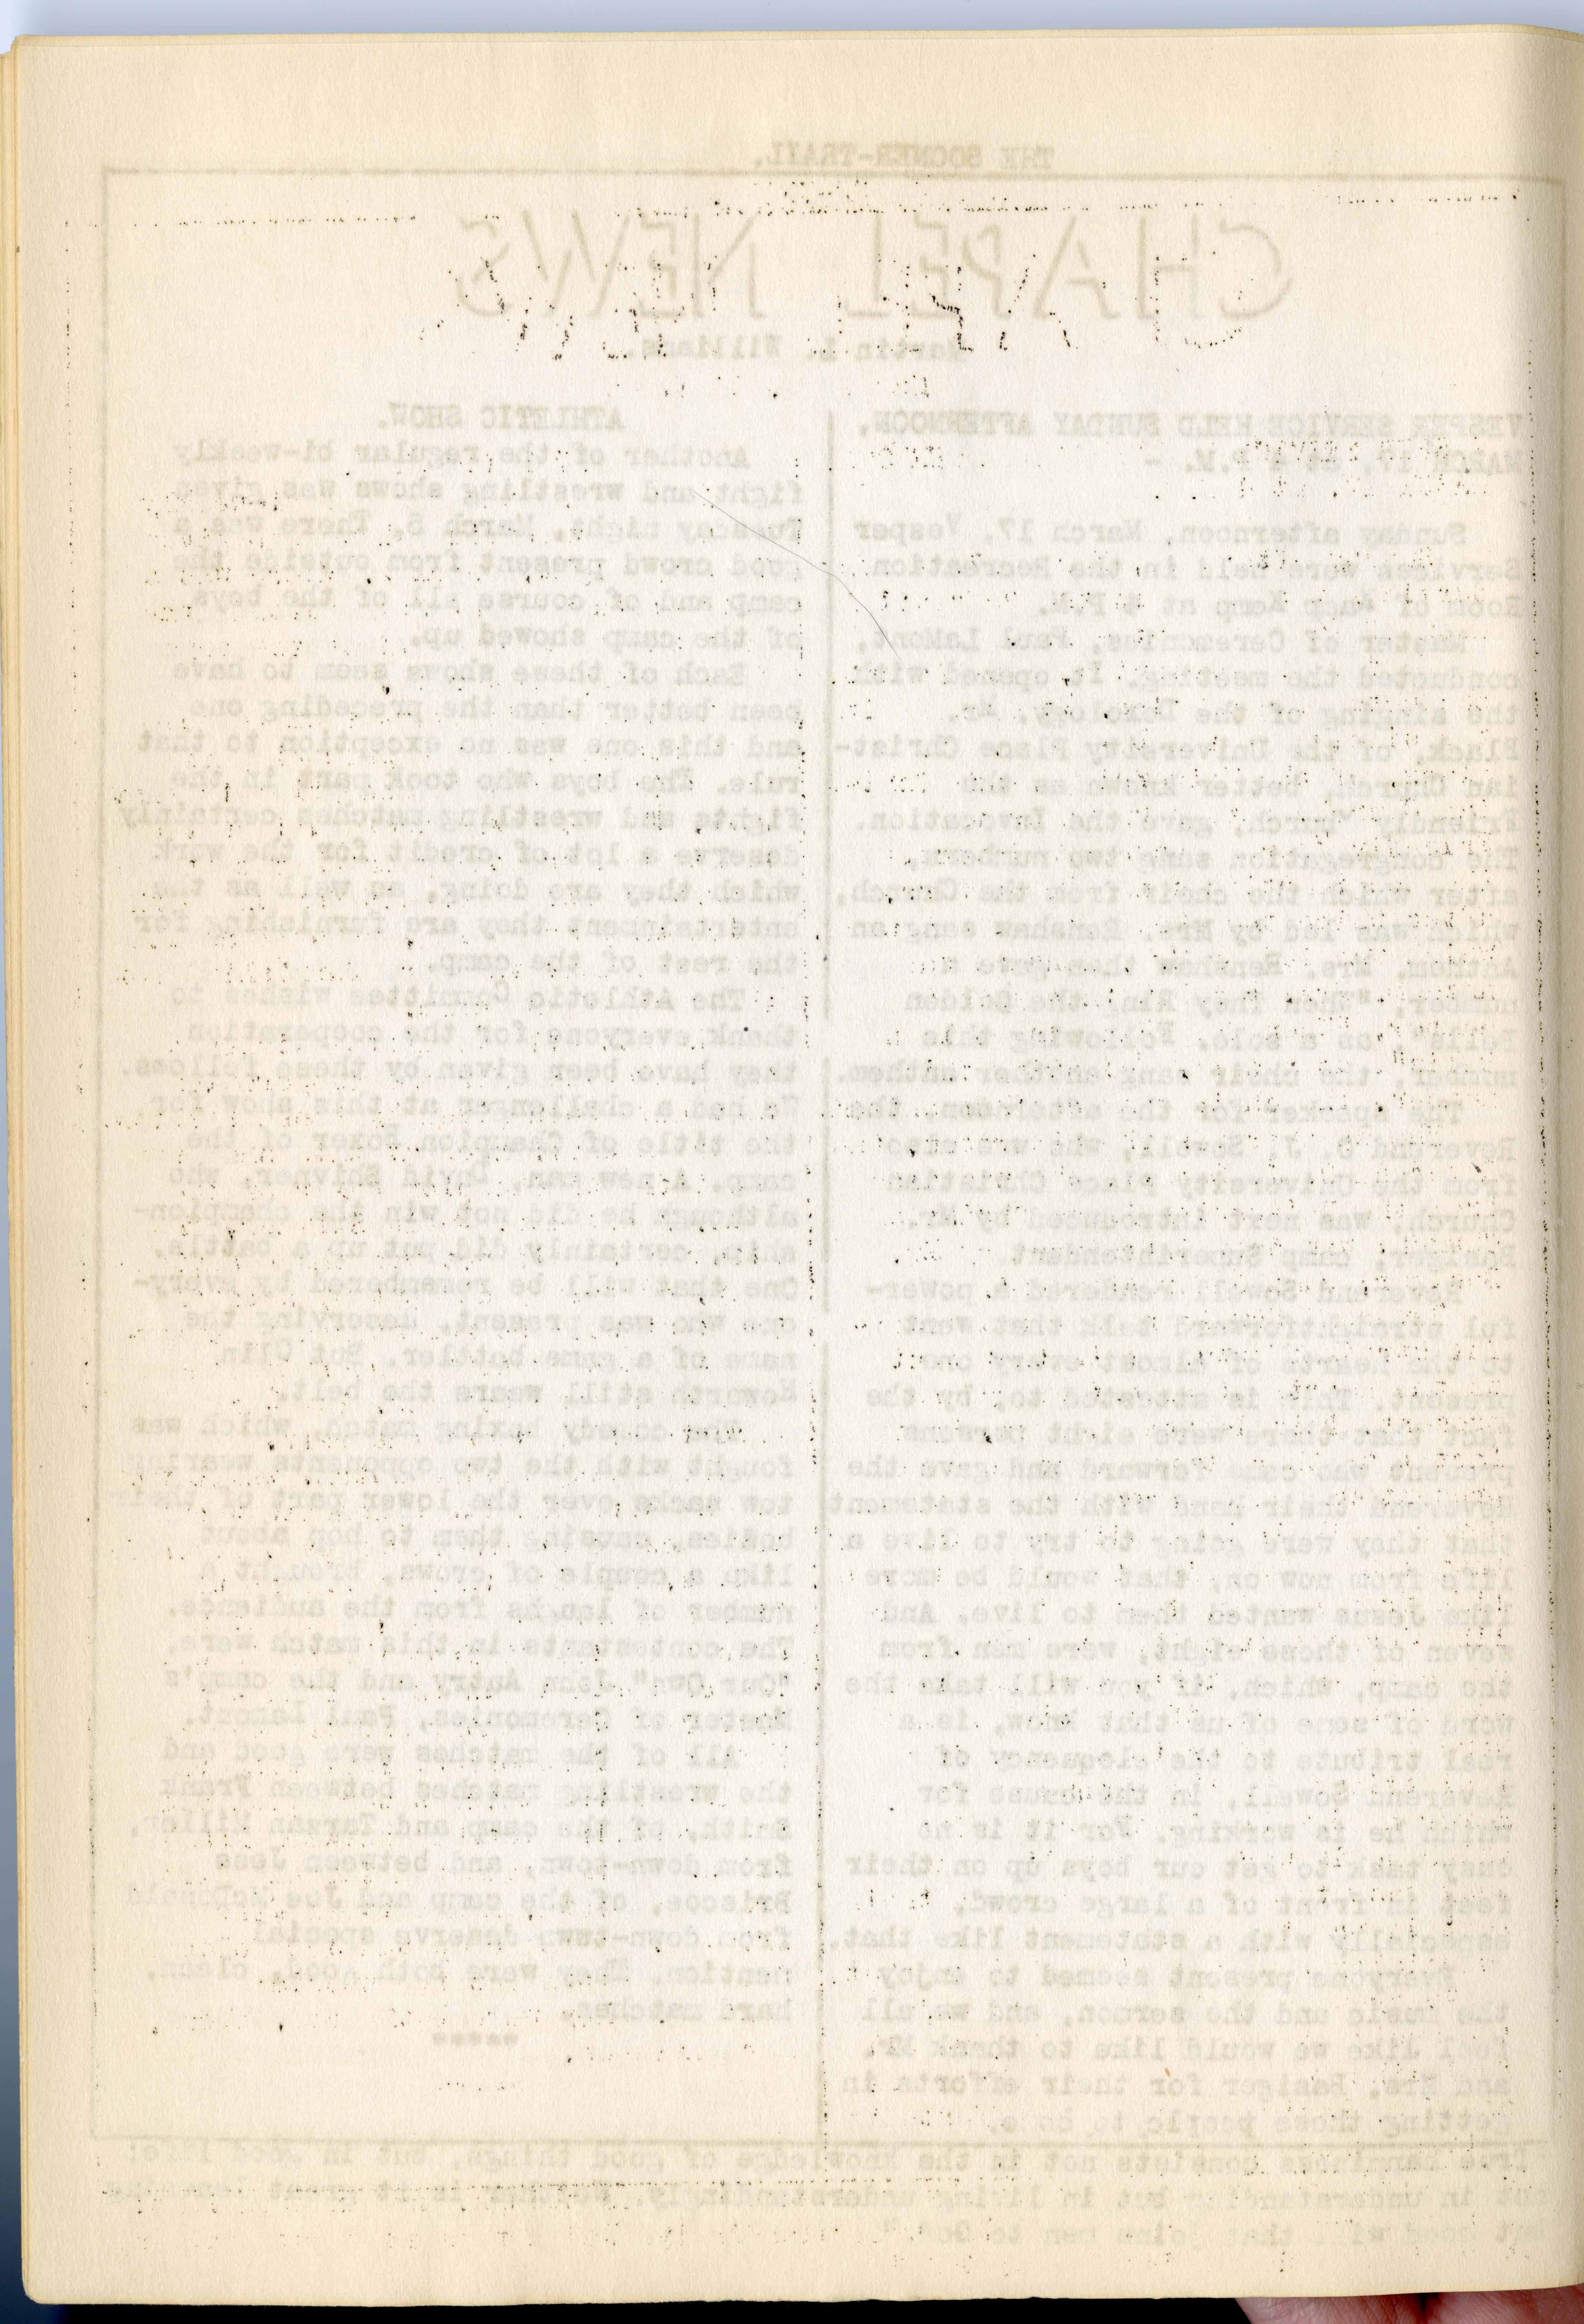 THE SOONER-TRAIL.
CHAPEL NEWS
Martin L. Williams.
VESPER SERVICE HELD SUNDAY AFTERNOON,
MARCH 17, P.M. -
Sunday afternoon, March 17, Vesper
Services were held in the Recreation
Room of Camp at P.M.
Master of Ceremonies, Paul LaMont,
conducted the meeting. It opened with
the singing of the Doxology. Mr.
Black, of the University Place Christ-
ian Church, better known as
Friendly Church, gave the Invocation.
The congregation sang two numbers,
after which the choir from the Church,
which was led by Mrs. Renshaw sang an
Anthem. Mrs. Renshaw then gave
number, "When They Ring the Golden
Bells", as a solo. Following this
number, the choir sang another anthem.
The speaker for the afternoon, the
Reverend Sowell, who was also
from the University Place Christian
Church, was next introduced by Mr.
Basiger, camp Superintendent.
Reverend Sowell rendered a power-
ful straightforward talk that went
to the hearts of almost every one
present. This is attested to, by the
fact that there were eight persons
present who came forward and gave the
Reverend their hand with the statement
that they were going to try to live a
life from now on, that would be more
like Jesus wanted them to live. And
seven of those eight, were men from
the camp, which, if you will take the
word of some of us that know, is a
real tribute to the eloquency of
Reverend Sowell, in the cause for
which he is working. For it is no
easy task to get our boys up on their
feet in front of a large crowd,
especially with a statement like that.
Everyone present seemed to enjoy
the music and the sermon, and we all
feel like we would like to thank Mr.
and Mrs. Basiger for their efforts in
getting these people to come.
ATHLETIC SHOW.
Another of the regular bi-weekly
fight and wrestling shows was given
Tuesday night, March 5. There was a
good crowd present from outside the
camp and of course all of the boys
of the camp showed up.
Each of these shows seem to have
been better than the preceding one
and this one was no exception to that
rule. The boys who took part in the
fights and wrestling matches certainly
deserve a lot of credit for the work
which they are doing, as well as the
entertainment they are furnishing for
the rest of the camp.
The Athletic Committee wishes to
thank everyone for the cooperation
they have been given by these fellows.
We had a challenger at this show for
the title of Champion Boxer of the
camp. A new man, David Shivner, who
although he did not win the champion-
ship, certainly did put up a battle.
One that will be remembered by every-
one who was present, deserving the
name of a game battler. But Olin
Howorth still wears the belt.
The comedy boxing match, which was
fought with the two opponents wearing
tow sacks over the lower part of their
bodies, causing them to hop about
like a couple of crows, brought a
number of laughs from the audience.
The contestants in this match were,
"Our Own" Gene Autry and the camp's
Master of Ceremonies, Paul Lamont.
All of the matches were good and
the wrestling matches between Frank
Smith, of the camp and Tarzan Miller,
from down-town, and between Jess
Briscoe, of the camp and Joe McDonald
from down-town deserve special
mention. They were both good, clean,
hard matches.
*****
True happiness consists not in the knowledge of good things, but in good life:
not in understanding but in living understandingly.
but good will that joins men to God."